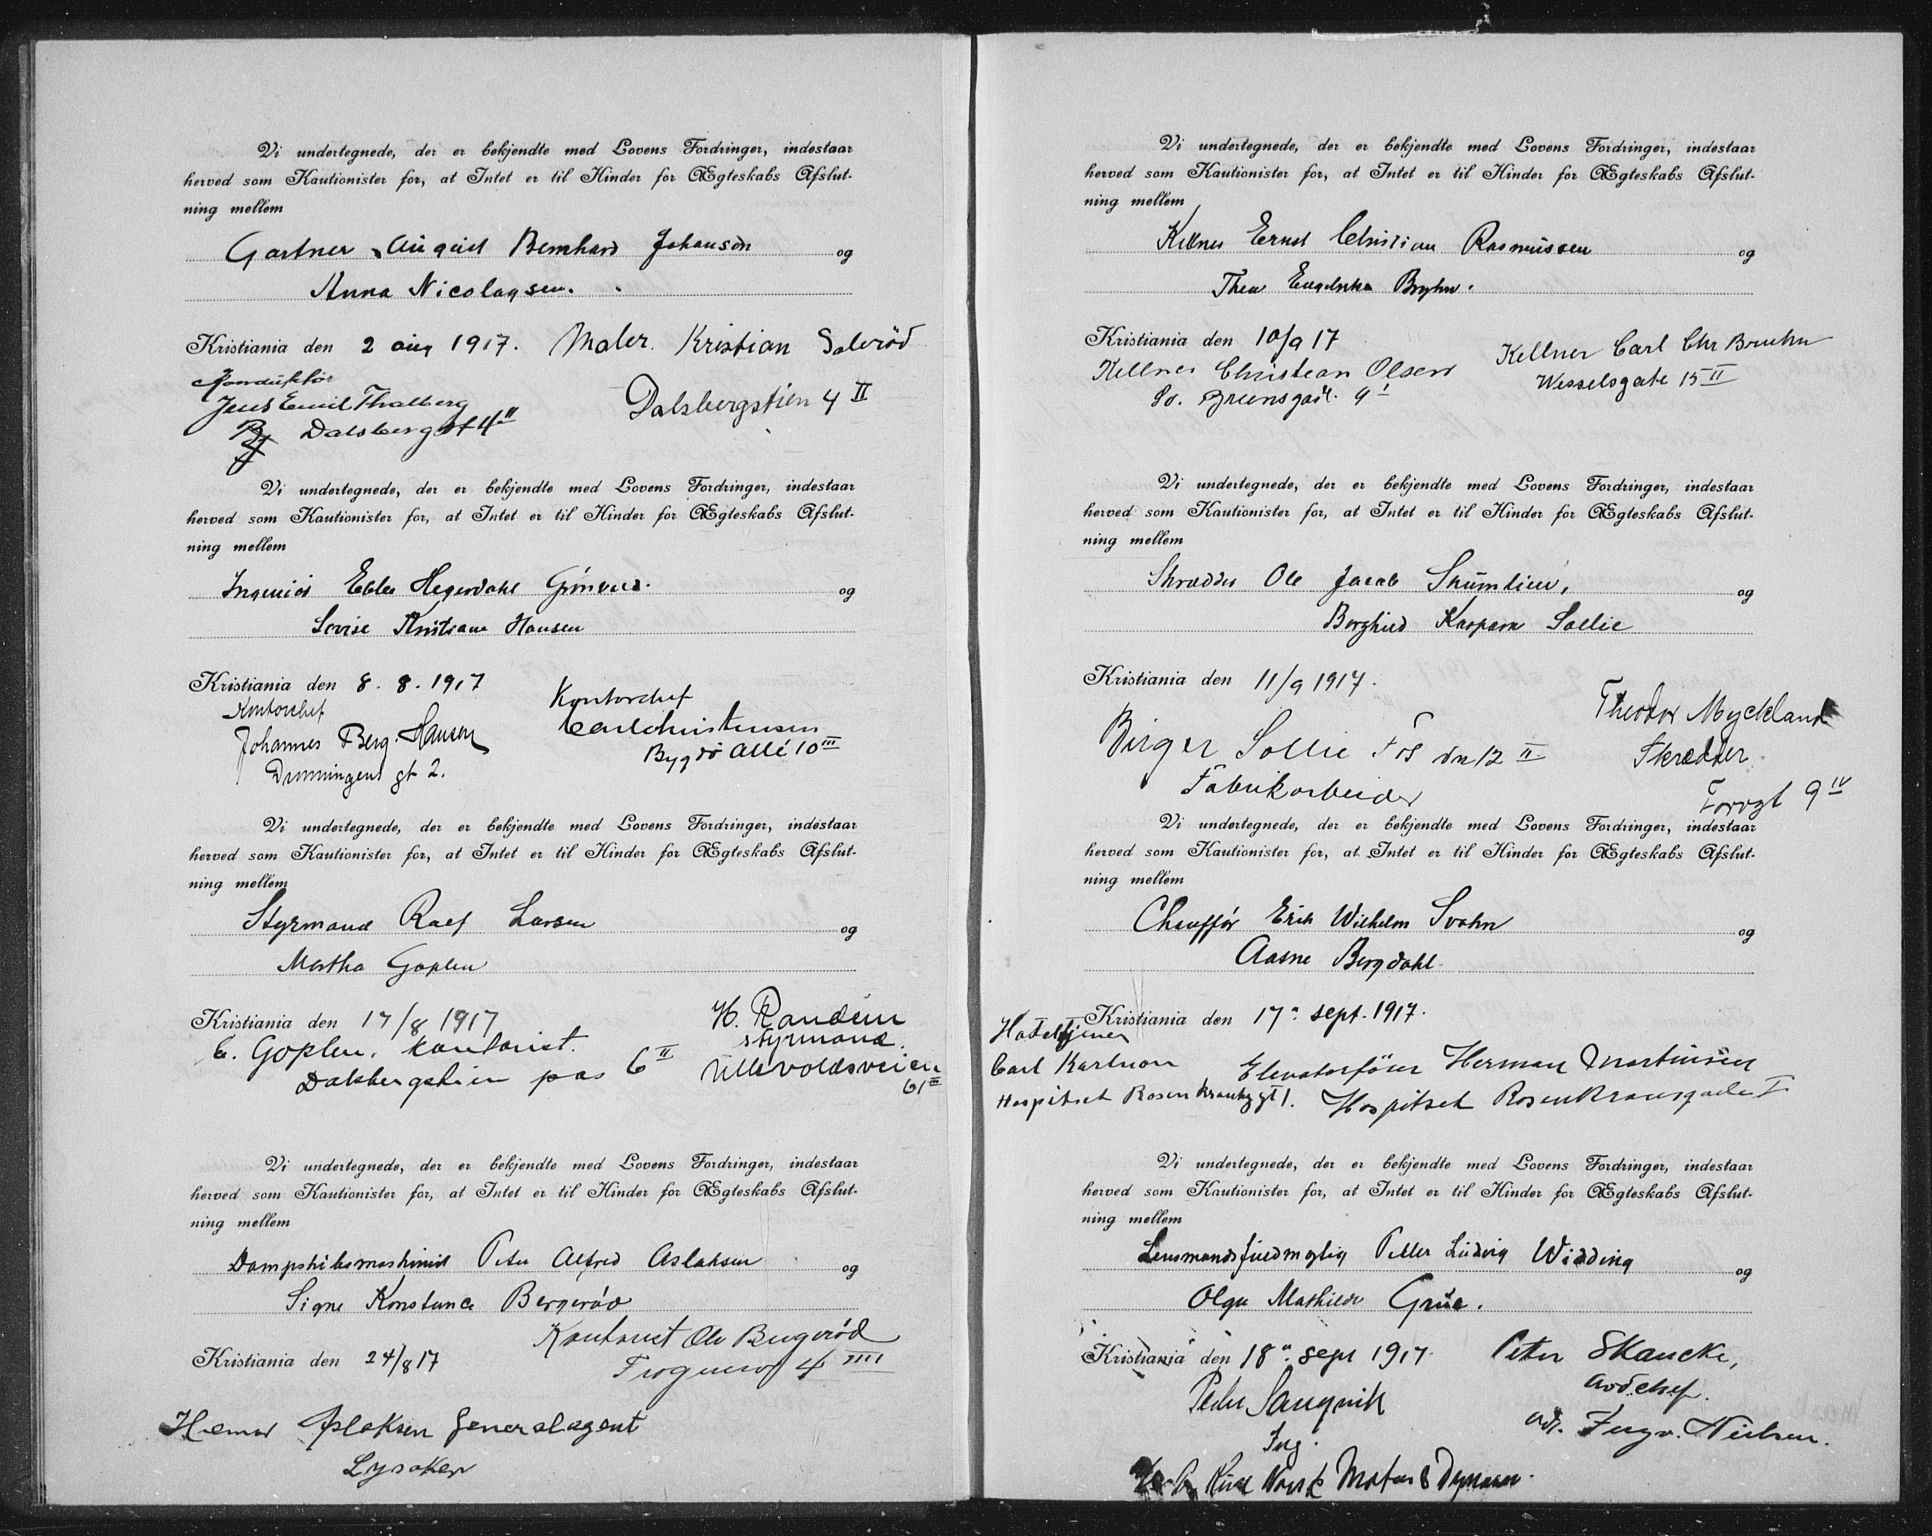 Vi undertegnede, der er bekjendte med Lovens Fordringer, indestaar
herved som Kautionister for, at Intet er til Hinder for Ægteskabs Afslut-
ning mellem
Gartner August Bernhard Johansen og
Anna Nicolaysen.
Kristiania den 2 aug 1917. Maler. Kristian Solerød
Konduktør
Jens Emil Thalberg Dalsbergstien 4 II
Dalsbergst 4 II
Vi undertegnede, der er bekjendte med Lovens Fordringer, indestaar
herved som Kautionister for, at Intet er til Hinder for Ægteskabs Afslut-
ning mellem
Ingeniør Ebbe Hegerdahl og
Lovise Kristiane Hansen
Kristiania den 8. 8. 1917 Kontorchef
Kontorchef Carl Christensen
Johannes Berg-Hansen Bygdø Allé 10 III
Dronningens gt 2.
Vi undertegnede, der er bekjendte med Lovens Fordringer, indestaar
herved som Kautionister for, at Intet er til Hinder for Ægteskabs Afslut-
ning mellem
Styrmand Ralf Larsen og
Martha Goplen
Kristiania den 17/8 1917 H. Randem
E. Goplen. kontorist. styrmand.
Dalsbergstien 6 II Ullevoldsveien
61 III
Vi undertegnede, der er bekjendte med Lovens Fordringer, indestaar
herved som Kautionister for, at Intet er til Hinder for Ægteskabs Afslut-
ning mellem
Dampskibsmaskinist Peter Alfred Aslaksen og
Signe Konstance Bergerød
Kontorist Ole Bergerød
Kristiania den 24/8 17 4 IIII
Aslaksen Generalagent
Lysaker
Vi undertegnede, der er bekjendte med Lovens Fordringer, indestaar
herved som Kautionister for, at Intet er til Hinder for Ægteskabs Afslut-
ning mellem
Kelner Ernst Christian Rasmussen og
Thea Bryhn.
Kristiania den 10/9 17 Kellner Carl Chr Bruhn
Kellner Christian Olsen Wesselsgate 15 II
9 I
Vi undertegnede, der er bekjendte med Lovens Fordringer, indestaar
herved som Kautionister for, at Intet er til Hinder for Ægteskabs Afslut-
ning mellem
Skrædder Ole Jacob Skumlien, og
Borghild Kaspara Sollie
Kristiania den 11/9 1917. Theodor Myckland
Birger Sollie 12 II Skrædder.
Fabrikarbeider Torvgt 9 IV
Vi undertegnede, der er bekjendte med Lovens Fordringer, indestaar
herved som Kautionister for, at Intet er til Hinder for Ægteskabs Afslut-
ning mellem
Chauffør Erik Wilhelm Svahn og
Aasne Bergdahl.
Kristiania den 17. sept. 1917.
Hoteltjener
Carl Karlson Elevatorfører Herman Martinsen
Hospitset Rosenkrantzgt 1. Hospitset Rosenkransgade I
Vi undertegnede, der er bekjendte med Lovens Fordringer, indestaar
herved som Kautionister for, at Intet er til Hinder for Ægteskabs Afslut-
ning mellem
Lensmandsfuldmægtig Petter Ludvig Widding og
Olga Mathilde Grüe.
Kristiania den 18. sept 1917. Peter Skancke,
Peder Sangvik avd chef.
Ing. adr. Ingv. Nielsen.
Norsk Motor & Dynamo.